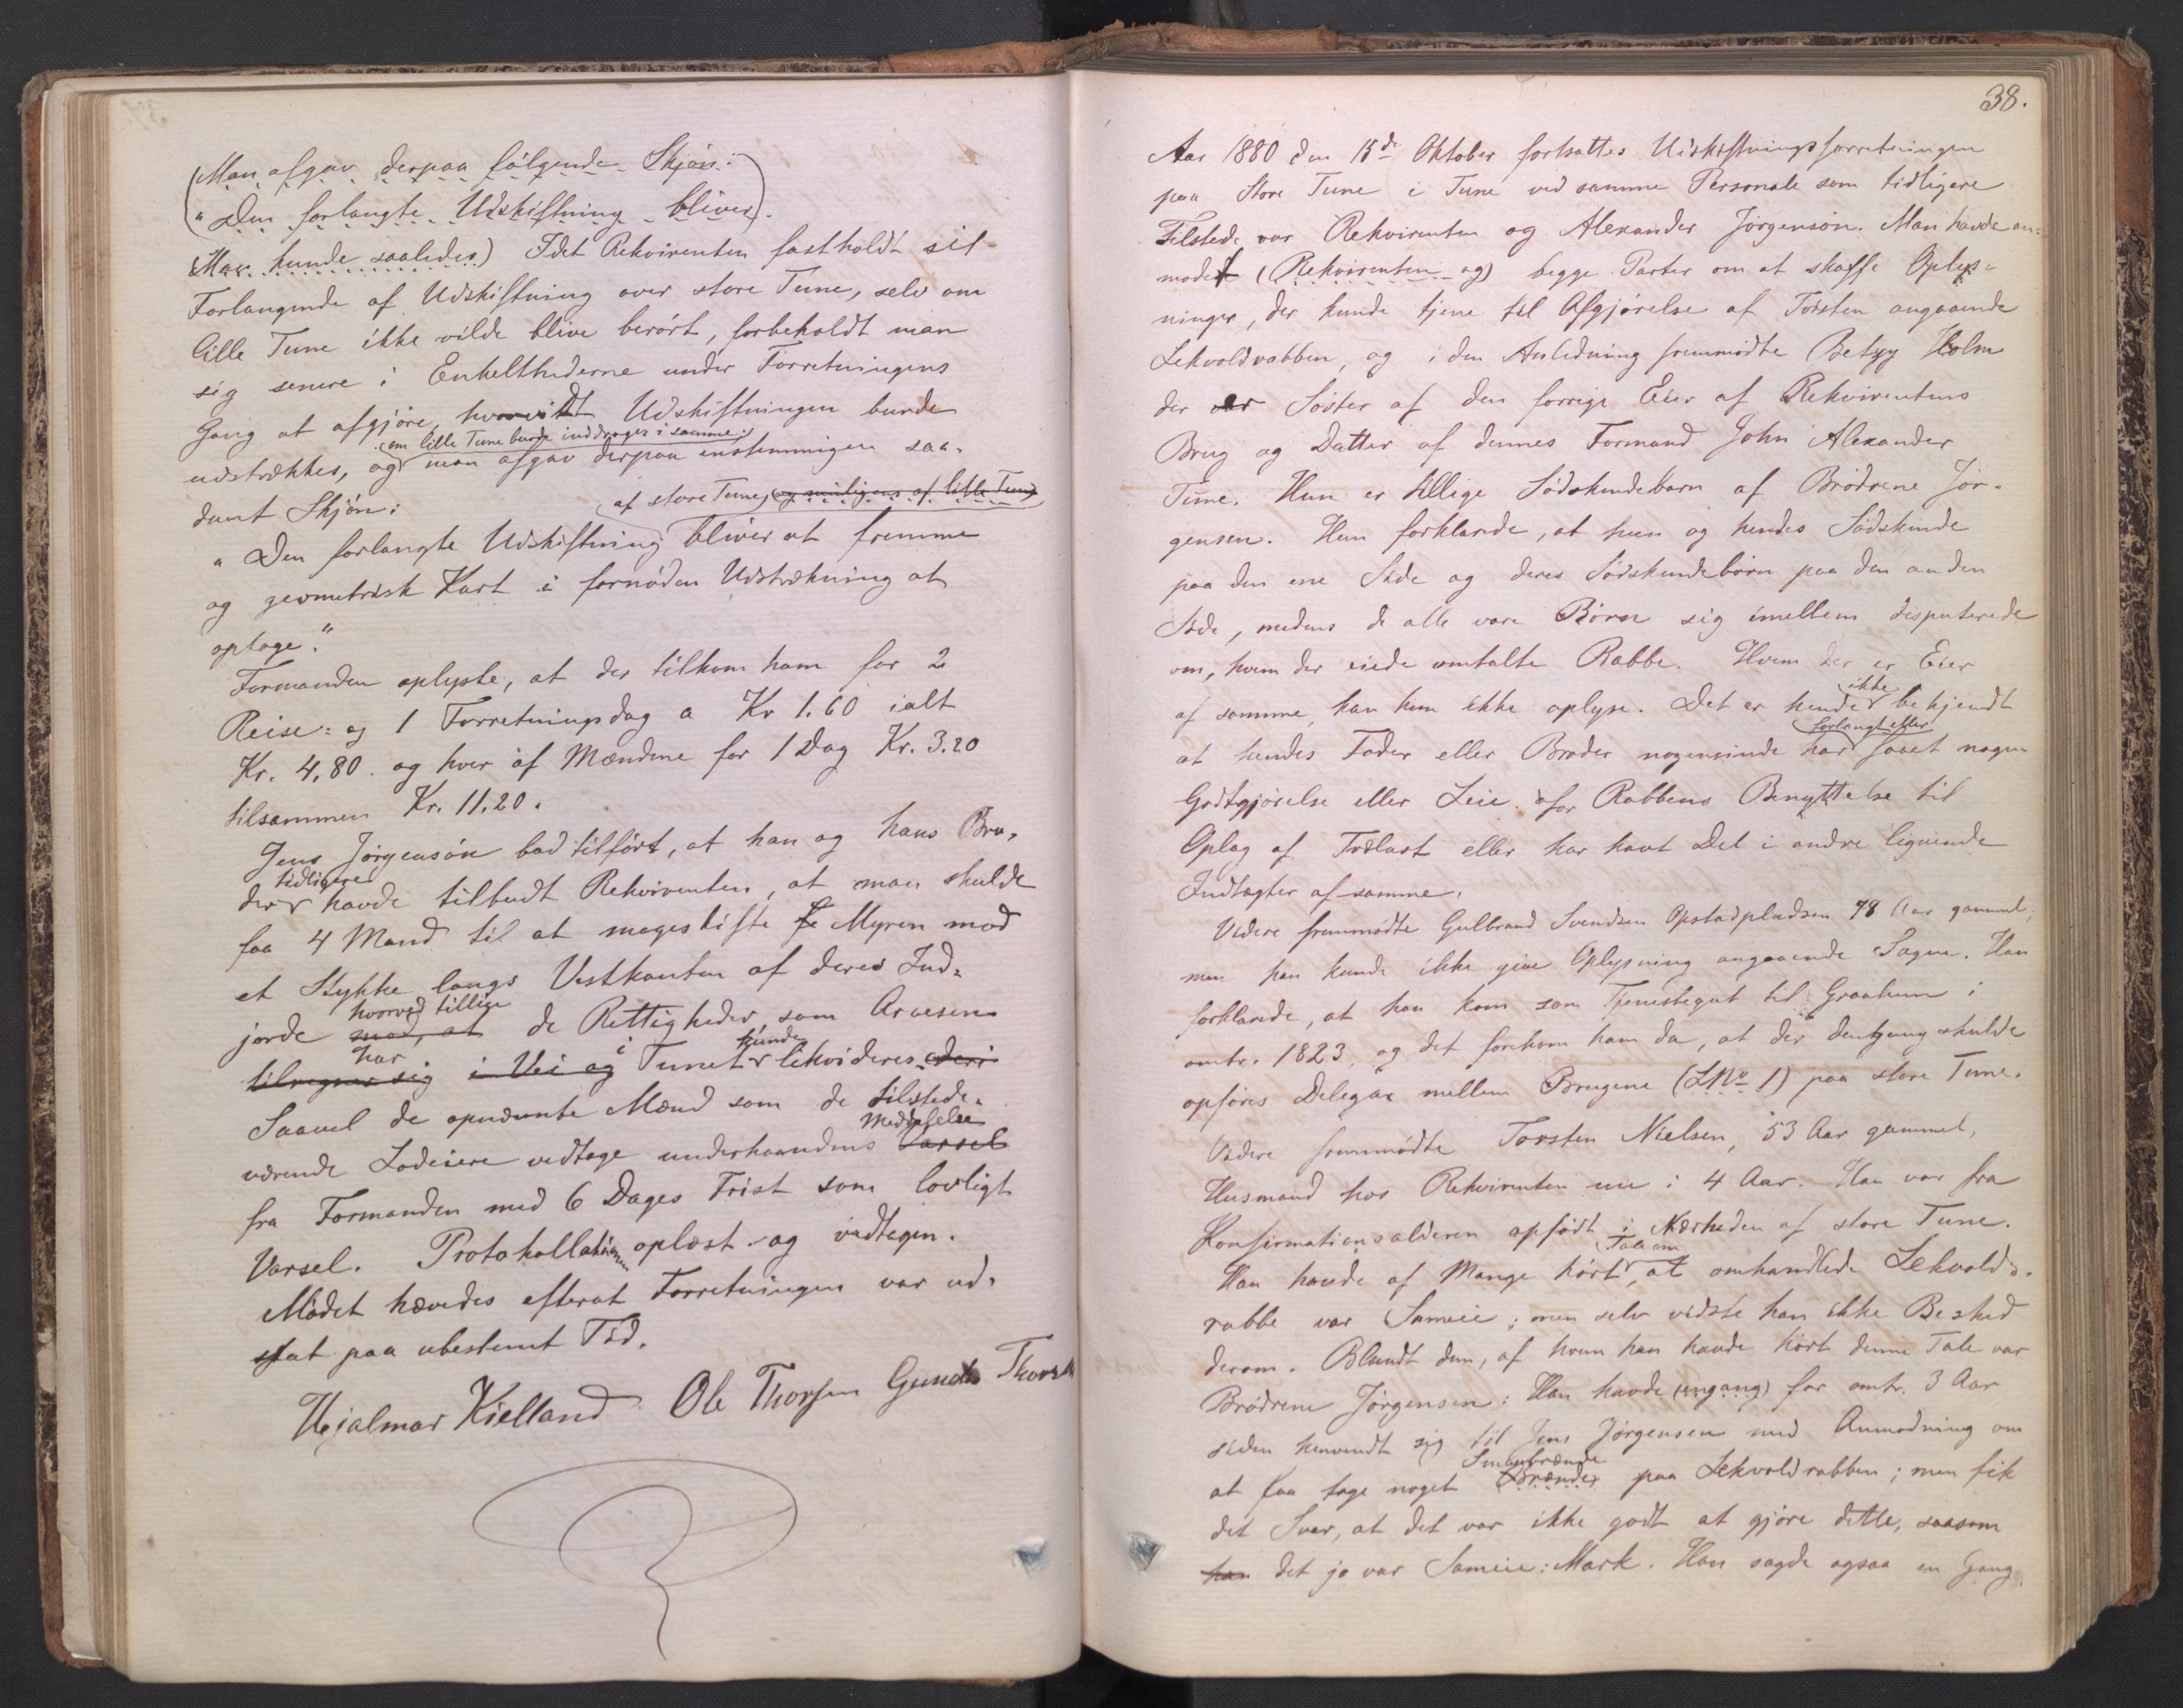 (Man afgav derpaa følgende Skjøn:
"Den forlangte Udskiftning bliver)
(Man kunde saaledes) Idet Rekvirenten fastholdt sit
Forlangende af Udskiftning over store Tune, selv om
lille Tune ikke vilde blive berørt, forbeholdt man
sig senere i Enkelthederne under Forretningens
Gang at afgjøre, hvorvidt Udskiftningen burde
(om lille Tune burde inddrages i samme)
udstrækkes, og man afgav derpaa enstemmigen saa-
dant Skjøn:
af store Tune, (og muligens af lille Tune)
"Den forlangte Udskiftning bliver at fremme
og geometrisk Kart i fornøden Udstrækning at
optage."
Formanden oplyste, at der tilkom ham for 2
Reise- og 1 Forretningsdag a Kr 1.60 ialt
Kr. 4,80 og hver af Mændene for 1 Dag Kr. 3.20
tilsammen Kr. 11.20.
Jens Jørgensøn bad tilført, at han og hans Bro-
tidligere
der havde tilbudt Rekvirenten, at man skulde
faa 4 Mand til at mageskifte Myren mod
et Stykke langs Vestkanten af deres Ind-
hvorved tillige
jorde mod, at de Rettigheder, som Arvesen
har i kunde
tilregner sig i Vei og Tunet likvideres.
Saavel de opnævnte Mænd som de tilstede-
Meddelelse
værende Lodeiere vedtage underhaandens Varsel
fra Formanden med 6 Dages Frist som lovligt
Varsel. Protokollationen oplæst og vedtagen.
Mødet hævedes efterat Forretningen var ud-
sat paa ubestemt Tid.
Hjalmar Kielland Ole Thorsen Gunder
38.
Aar 1880 den 15de Oktober fortsattes Udskiftningsforretningen
paa Store Tune i Tune ved samme Personale som tidligere
Tilstede var Rekvirenten og Alexander Jørgensøn. Man havde an-
modet (Rekvirenten og) begge Parter om at skaffe Oplys-
ninger, der kunde tjene til Afgjørelse af Tvisten angaaende
Lekvoldrabben, og i den Anledning fremmødte Betzy Holm
der er Søster af den forrige Eier af Rekvirentens
Brug og Datter af dennes Formand John Alexander
Tune. Hun er tillige Sødskendebarn af Brødrene Jør-
gensen. Hun forklarede, at hun og hendes Sødskende
paa den ene Side og deres Sødskendebørn paa den anden
Side, medens de alle vare Børn sig imellem disputerede
om, hvem der eiede omtalte Rabbe. Hvem der er Eier
ikke
af samme, kan hun ikke oplyse. Det er hende bekjendt
forlangt eller
at hendes Fader eller Broder nogensinde har faaet nogen
Godtgjørelse eller Leie for Rabbens Benyttelse til
Oplag af Trælast eller har havt Del i andre lignende
Indtægter af samme.
Videre fremmødte Gulbrand Svendsen Opstadpladsen 78 Aar gammel,
men han kunde ikke give Oplysning angaaende Sagen. Han
forklarede, at han kom som Tjenestegut til Graalum i
omtr. 1823, og det forekom ham da, at der dengang skulde
opføres Delegar mellem Brugene (LNo 1) paa store Tune.
Videre fremmødte Torsten Nielsen, 53 Aar gammel,
Husmand hos Rekvirenten nu i 4 Aar. Han var fra
Konfirmationsalderen opfødt i Nærheden af store Tune.
Tale om
Han havde af Mange hørt, at omhandlede Lekvolds-
rabbe var Sameie; men selv vidste han ikke Besked
derom. Blandt dem, af hvem han havde hørt denne Tale var
Brødrene Jørgensen: Han havde (engang) for omtr. 3 Aar
siden henvendt sig til Jens Jørgensen med Anmodning om
Smaabrænde
at faa tage noget (Brænde) paa Lekvoldrabben; men fik
det Svar, at det var ikke godt at gjøre dette, saasom
han det jo var Sameie-Mark. Han sagde ogsaa en Gang